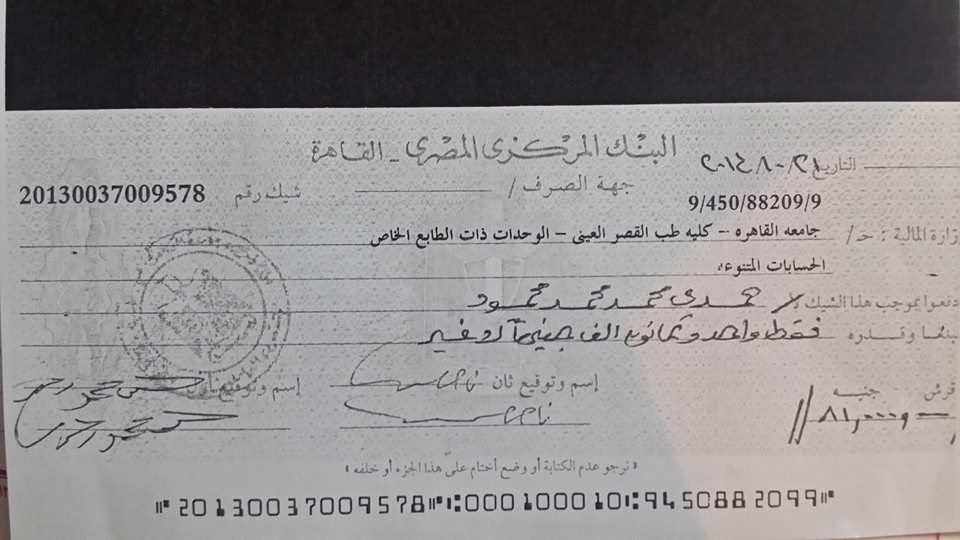 البنك المركزي المصري - القاهرة
التاريخ ٢٠١٤/١٠/٢١
جهة الصرف /
شيك رقم 20130037009578
9/450/88209/9
وزارة المالية : حـ/ جامعه القاهره - كليه طب القصر العينى - الوحدات ذات الطابع الخاص
الحسابات المتنوعه
ادفعوا بموجب هذا الشيك لأمر حمدى محمد محمد محمود
مبلغا وقدره فقط واحد وثمانون الف جنيها لا غير
قرش جنيه
إسم وتوقيع ثان
إسم وتوقيع أول
٨١,٠٠٠
« نرجو عدم الكتابة أو وضع أختام على هذا الجزء أو خلفه »
⑈20130037009578⑈⑆000100010⑆9450882099⑈